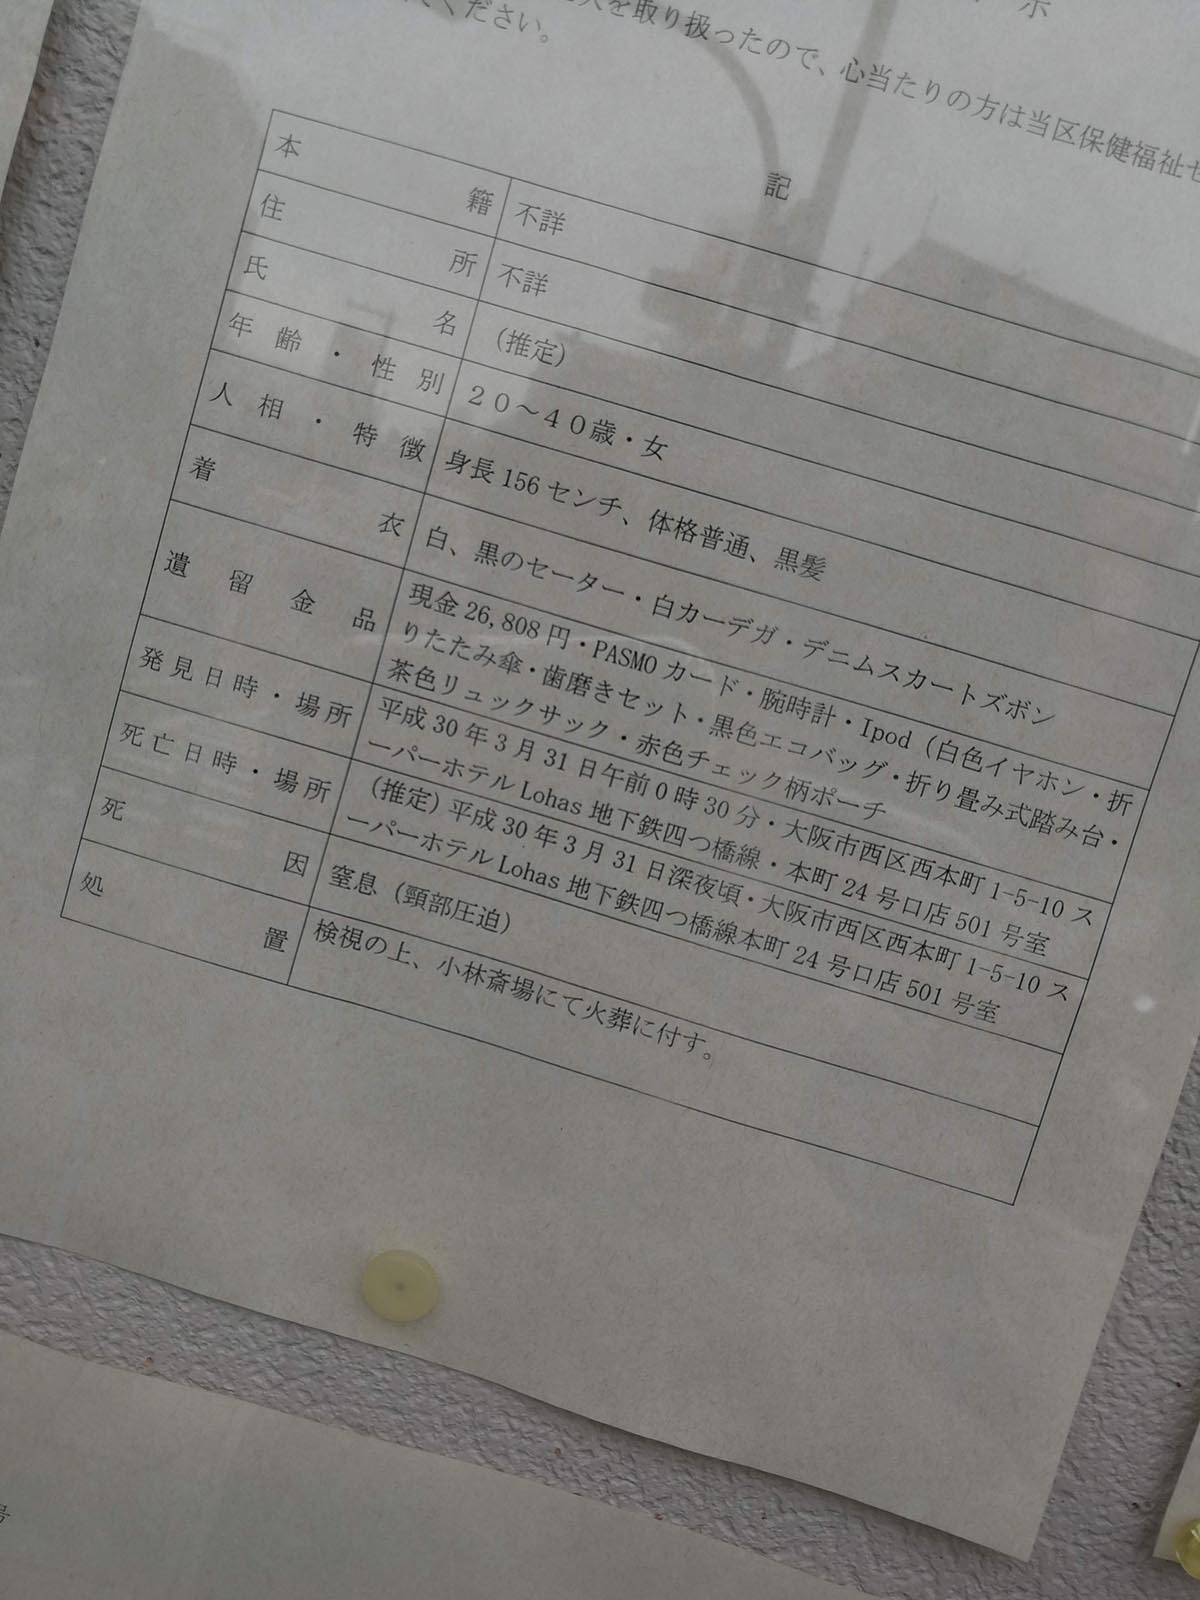 示
人を取り扱ったので、心当たりの方は当区保健福祉セ
ください。
記
本籍 不詳
住所 不詳
氏名 (推定)
年齢・性別 20～40歳・女
人相・特徴 身長156センチ、体格普通、黒髪
着衣 白、黒のセーター・白カーデガ・デニムスカートズボン
遺留金品 現金26,808円・PASMOカード・腕時計・Ipod(白色イヤホン・折
りたたみ傘・歯磨きセット・黒色エコバッグ・折り畳み式踏み台・
茶色リュックサック・赤色チェック柄ポーチ
発見日時・場所 平成30年3月31日午前0時30分・大阪市西区西本町1-5-10ス
ーパーホテルLohas地下鉄四つ橋線・本町24号口店501号室
死亡日時・場所 (推定)平成30年3月31日深夜頃・大阪市西区西本町1-5-10ス
ーパーホテルLohas地下鉄四つ橋線本町24号口店501号室
死因 窒息(頸部圧迫)
処置 検視の上、小林斎場にて火葬に付す。
号